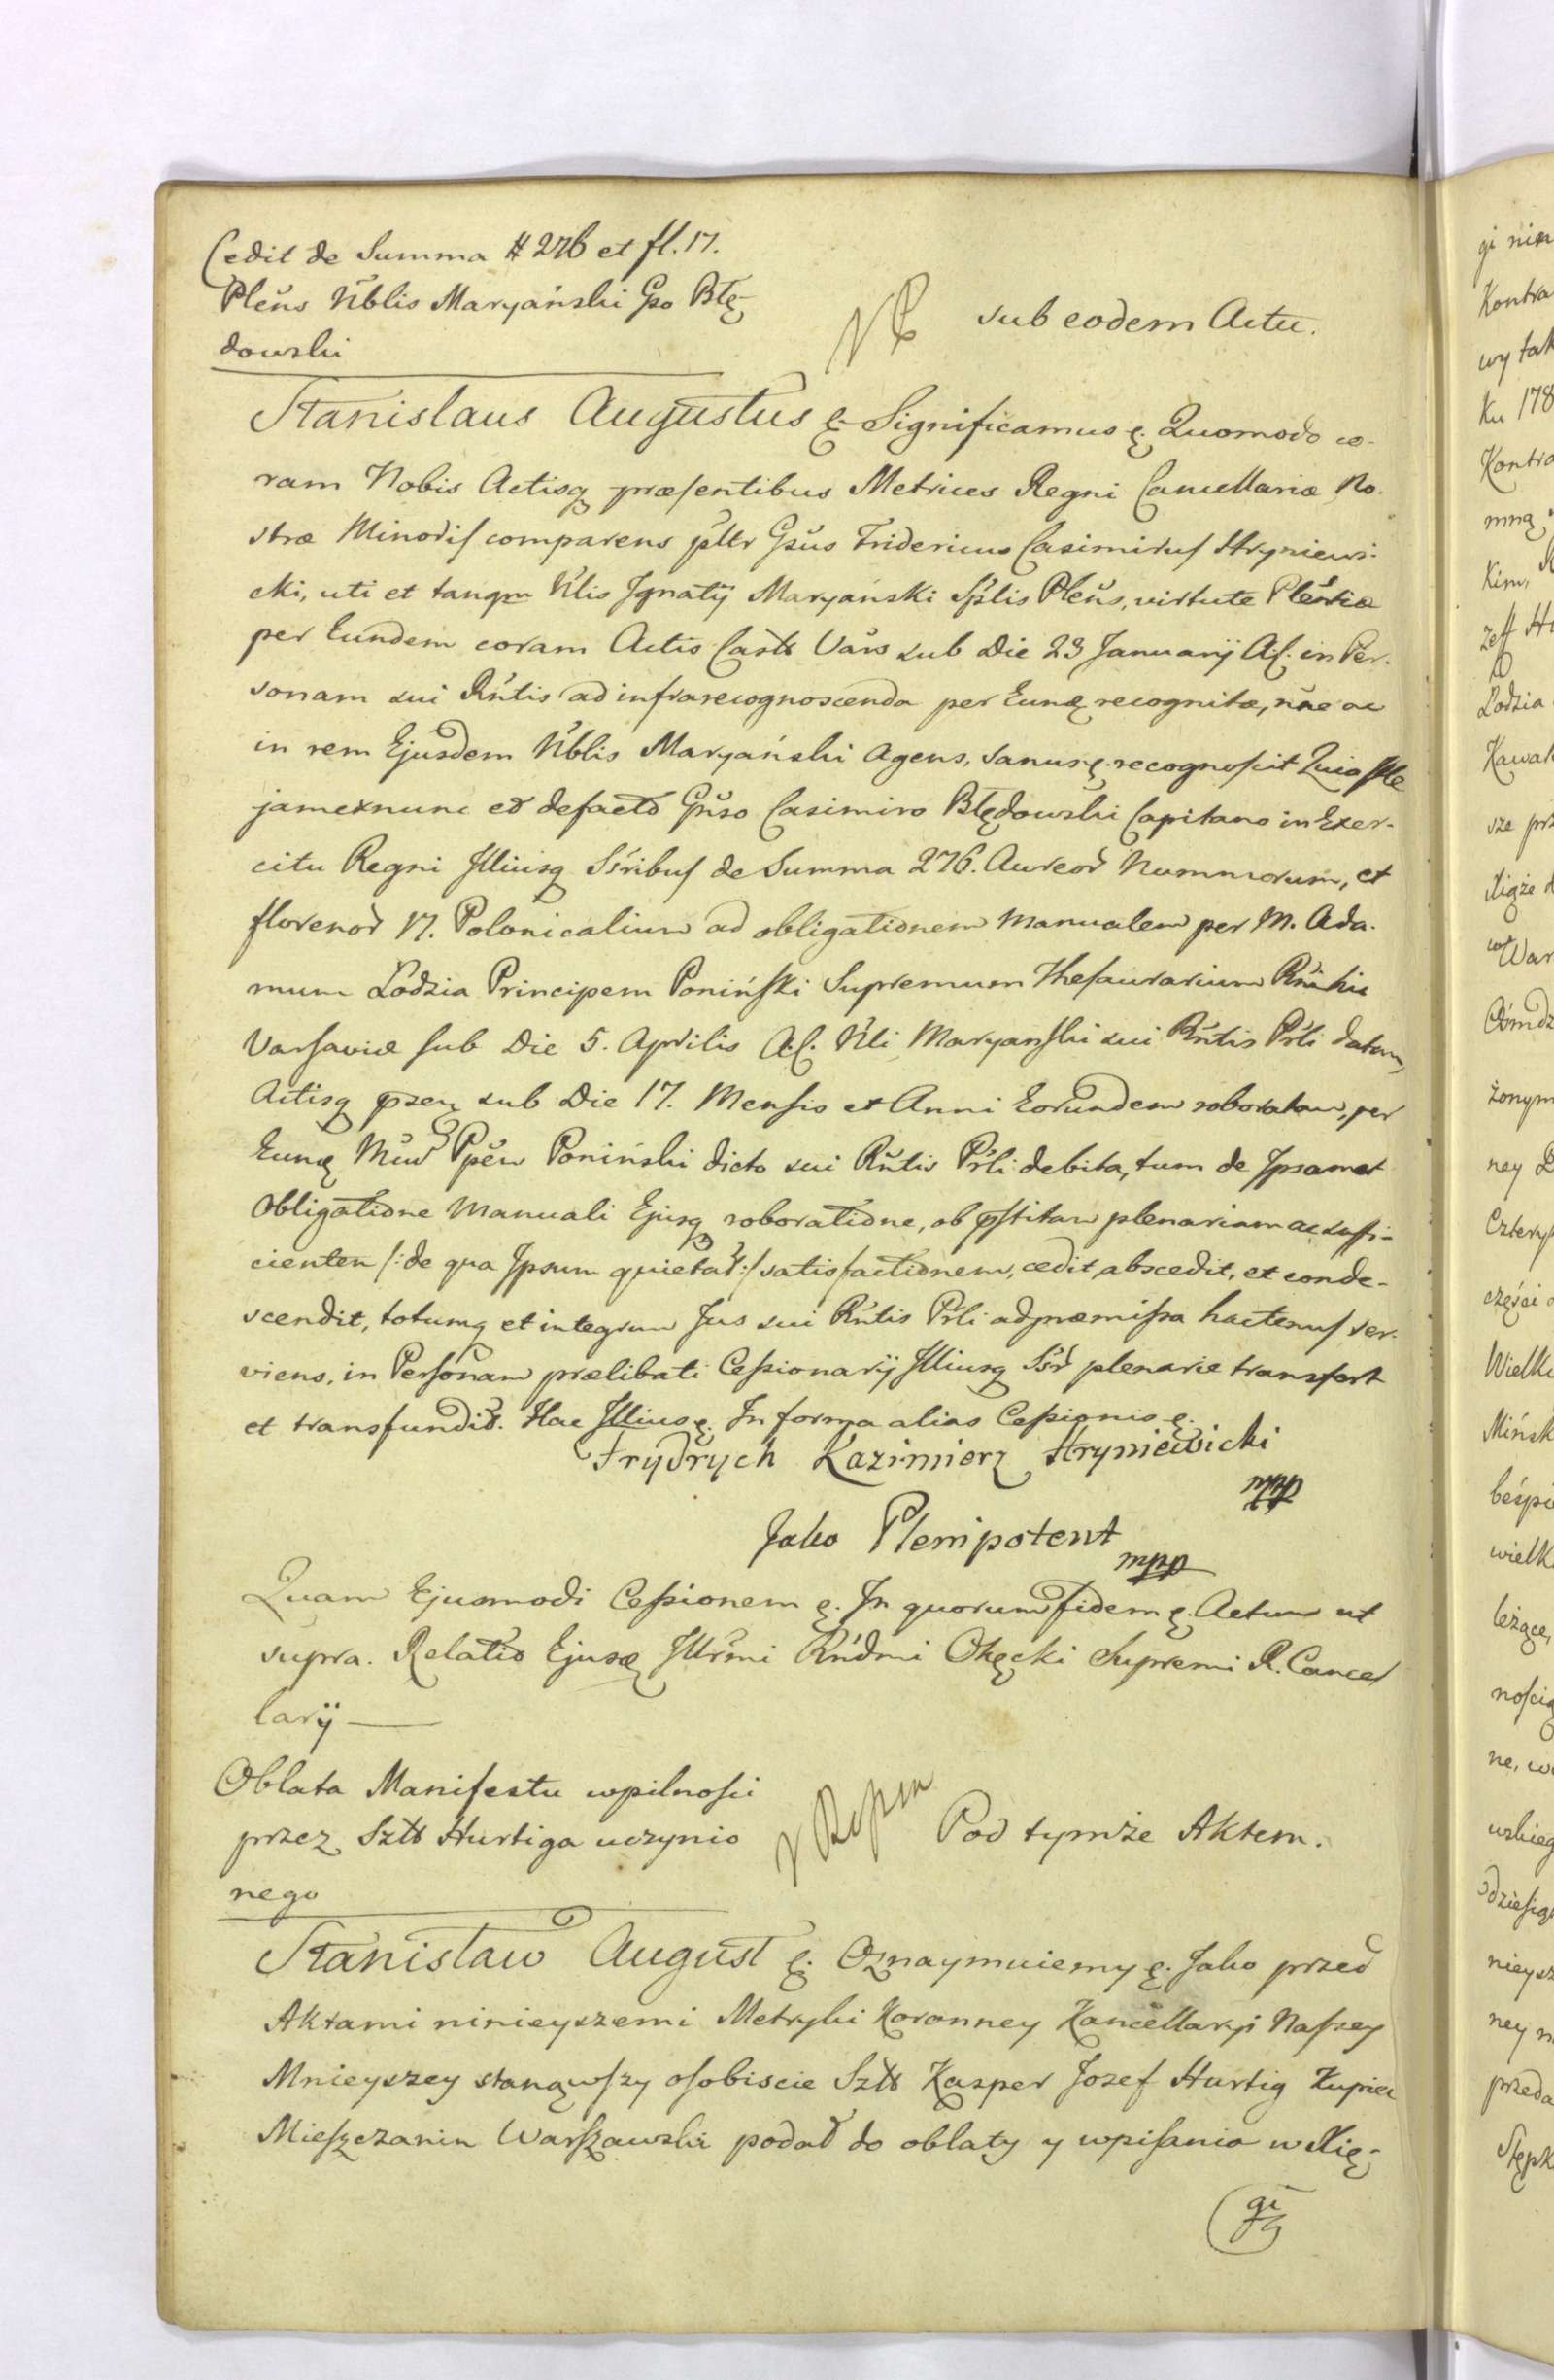 Cedit de Summa # 276 et fl. 17.
Pleňs Nblis Maryański Gso Błę-
dowski
sub eodem Actu.
Stanislaus Augustus &. Significamus &. Quomodo co-
ram Nobis Actisq præsentibus Metrices Regni Cancellariæ No-
stræ Minoris comparens pltr Gsus Fridericus Casimirus Hryniewi-
cki, uti et tanqm Nlis Ignatij Maryański Splis Pleňs, virtute Pleňtiæ
per Eundem coram Actis Castr Vars sub Die 23 Januarij A.C. in Per-
sonam sui Rňtis ad infrarecognoscenda per Eund recognitæ, nňe ac
in rem Ejusdem Nblis Maryański Agens, sanus &. recognoscit Quia Ille
jamexnunc et defacto Gňso Casimiro Błędowski Capitano in Exer-
citu Regni Illiusq Ssribus de Summa 276. Aureor Nummorum, et
florenor 17. Polonicalium ad obligationem Manualem per M. Ada-
mum Lodzia Principem Poniński Supremum Thesaurarium Rňi hic
Varsaviæ sub Die 5. Aprilis A.C. Nli Maryański sui Rňtis Prli datam,
Actisq psen sub Die 17. Mensis et Anni Eorundem roboratam, per
Eund Mum Ppem Poniński dicto sui Rňtis Prli debita, tum de Ipsamet
Obligatione Manuali Ejusq roboratione, ob pstitam plenariam ac suffi-
cientem /: de qua Ipsum quietat :/ satisfactionem, cedit, abscedit, et conde-
scendit, totumq et integrum Jus sui Rňtis Prli ad præmissa hactenus ser-
viens, in Personam prælibati Cessionarij Illiusq Ssr plenarie transfert
et transfundit. Hac Illius &. In forma alias Cessionis &.
Frydrych Kazimierz Hryniewicki
mpp
Jako Plenipotent
mpp
Quam Ejusmodi Cessionem &. In quorum fidem &. Actum ut
supra. Relatio Ejusd Illrmi Rňdmi Okęcki Supremi R. Cancel
larij
Oblata Manifestu w pilności
przez Szlt Hurtiga uczynio
nego
Pod tymże Aktem.
Stanisław August &. Oznaymuiemy &. Jako przed
Aktami ninieyszemi Metryki Koronney Kancellaryi Naszey
Mnieyszey stanąwszy osobiscie Szlt Kasper Jozef Hurtig Kupiec
Mieszczanin Warszawski podał do oblaty y wpisania w Xię-
gi